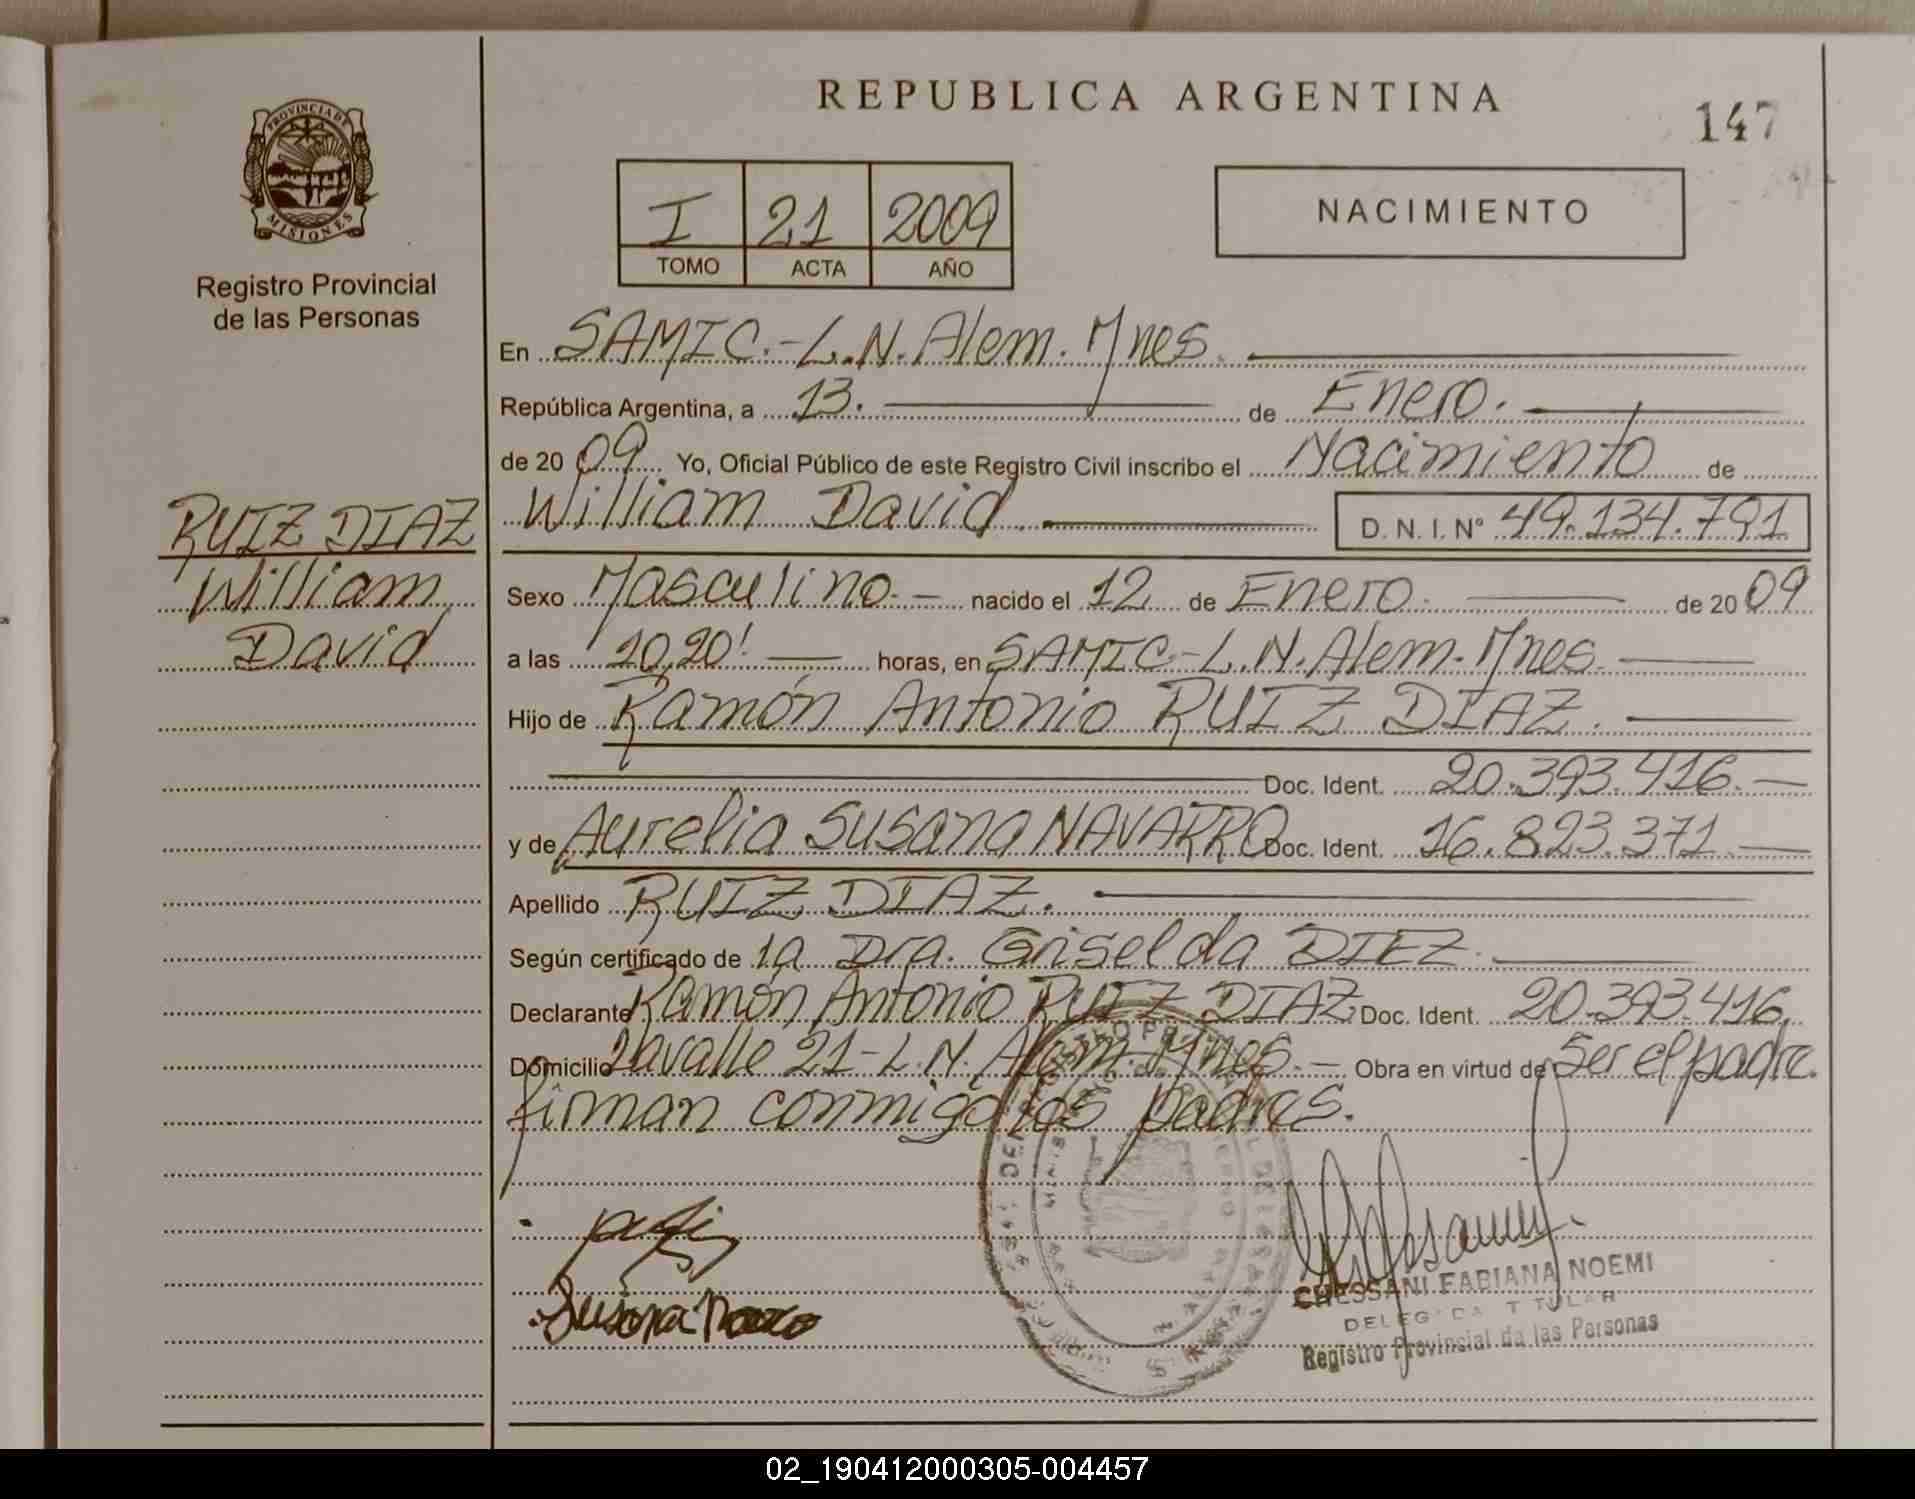 REPUBLICA ARGENTINA
147
PROVINCIA DE
MISIONES
Registro Provincial
de las Personas
I 21 2009
TOMO ACTA AÑO
NACIMIENTO
En SAMIC.-L.N.Alem.Mnes.
República Argentina, a 13. de Enero.
de 2009 Yo, Oficial Público de este Registro Civil inscribo el Nacimiento de
William David D. N. I. Nº 49.134.791
RUIZ DIAZ
William
David
Sexo Masculino.- nacido el 12 de Enero. de 2009
a las 10,20' horas, en SAMIC.-L.N.Alem.Mnes.
Hijo de Ramón Antonio RUIZ DIAZ.
Doc. Ident. 20.393.416.-
y de Aurelia Susana NAVARRO Doc. Ident. 16.823.371.-
Apellido RUIZ DIAZ.
Según certificado de la Dra. Griselda DIEZ.
Declarante Ramón Antonio RUIZ DIAZ Doc. Ident. 20.393.416.
Domicilio Lavalle 21-L.N.Alem.Mnes.- Obra en virtud de Ser el padre.
firman conmigo los padres.
Susana
CHESSANI FABIANA NOEMI
DELEGADA TITULAR
Registro Provincial de las Personas
02_190412000305-004457